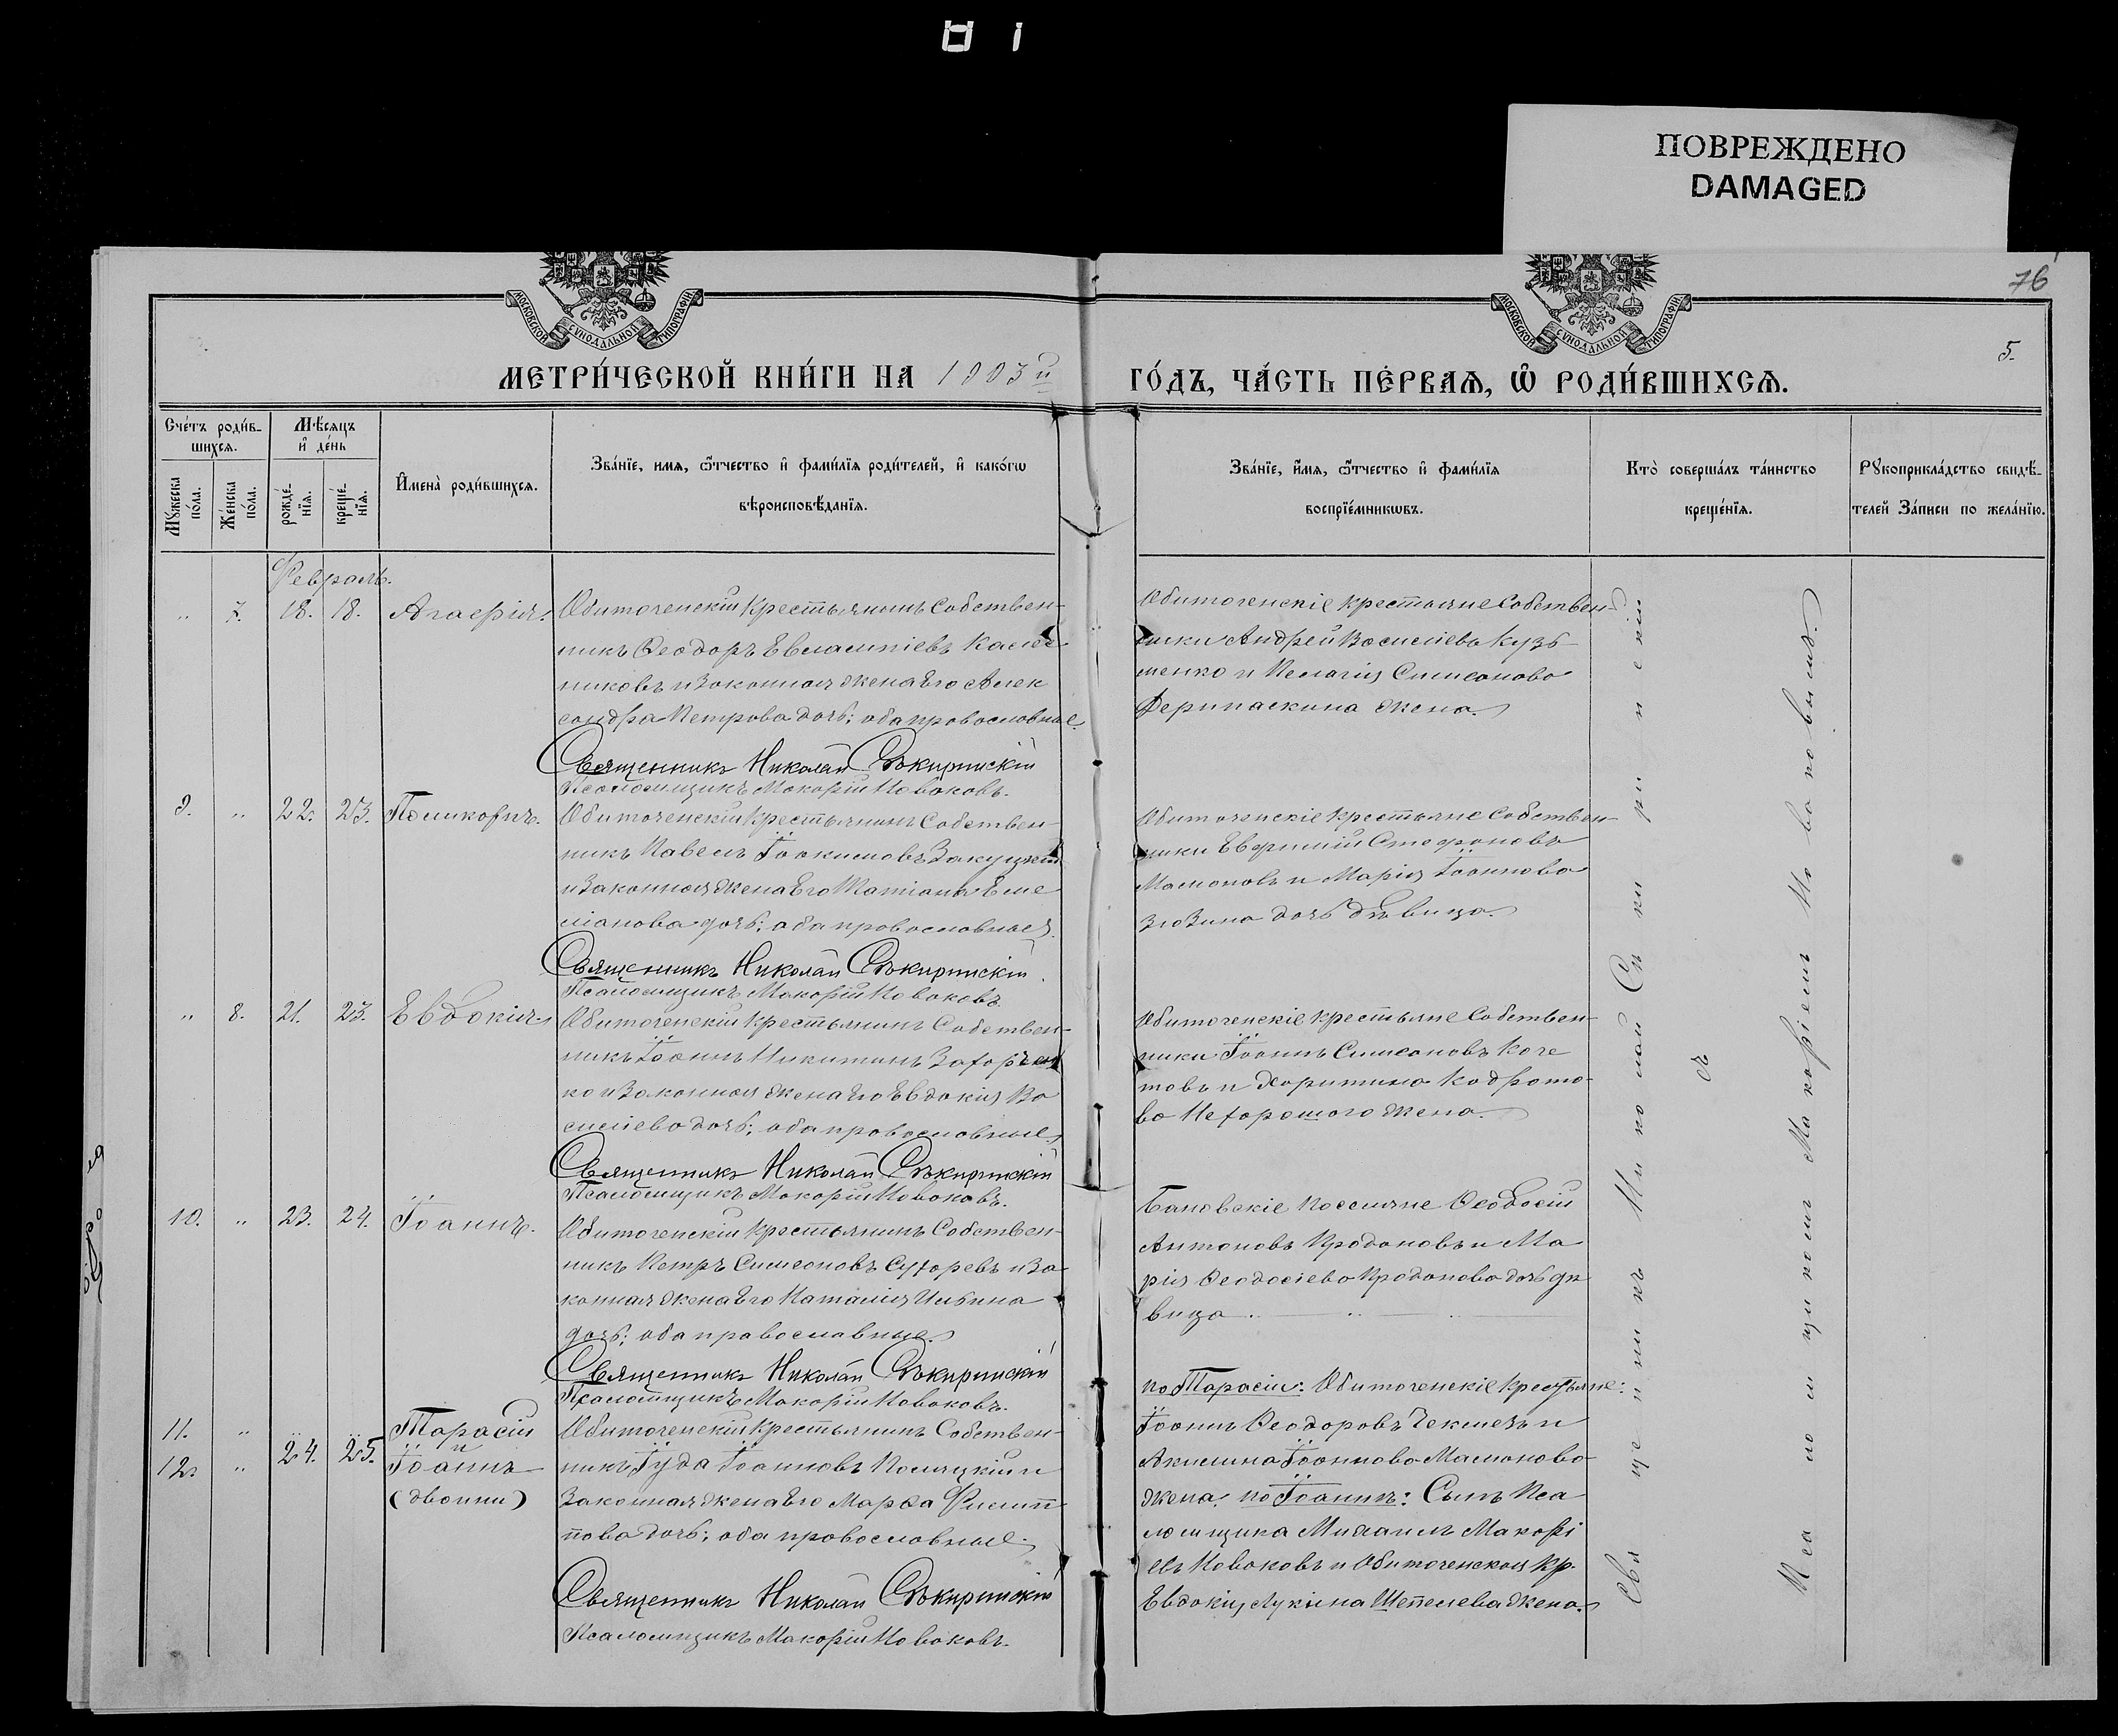 ПОВРЕЖДЕНО
DAMAGED
76
5.
МОСКОВСКОЙ СѴНОДАЛЬНОЙ ТИПОГРАФІИ
МОСКОВСКОЙ СѴНОДАЛЬНОЙ ТИПОГРАФІИ
МЕТРИ́ЧЕСКОЙ КНИ́ГИ НА 1903й
ГО́ДЪ, ЧА́СТЬ ПЕ́РВАЯ, Ѡ РОДИ́ВШИХСЯ.
Сче́тъ роди́в-
шихся.
Мѣ́сяцъ
и де́нь
Му́жеска по́ла.
Же́нска по́ла.
рожде́-
нїя.
креще́-
нїя.
И́мена̀ роди́вшихся.
Зва́нїе, имя, ѻ́тчество и фами́лїя роди́телей, и како́гѡ
вѣроисповѣ́данїя.
Зва́нїе, и́мя, ѻ́тчество и фами́лїя
воспрїе́мникѡвъ.
Кто̀ соверша́лъ та́инство
креще́нїя.
Рꙋкоприкла́дство свидѣ́-
телей За́писи по жела́нїю.
Февраль.
„ 7. 18. 18. Агафія.
Обиточенскій крестьянинъ собствен-
никъ Ѳеодоръ Евлампіевъ
никовъ и законная жена его Алек
сандра Петрова дочь; оба православные
Священникъ Николай Сѣкиринскій
Псаломщикъ Макарій Новаковъ.
Обиточенскіе крестьяне собствен-
ники Андрей Василіевъ Кузь
менко и Пелагія Симеонова
Дерипаскина жена.
9. „ 22. 23. Поликарпъ.
Обиточенскій крестьянинъ собствен-
никъ Павелъ Іоакимовъ Закуцкій
и законная жена его Татіана Еме
ліанова дочь; оба православные.
Священникъ Николай Сѣкиринскій
Псаломщикъ Макарій Новаковъ
Обиточенскіе крестьяне собствен-
ники Евфимій Стефановъ
Мамоновъ и Марія Іоаннова
дочь дѣвица.
„ 8. 21. 23. Евдокія
Обиточенскій крестьянинъ собствен-
никъ Іоаннъ Никитинъ Захарчен
ко и законная жена его Евдокія Ва
силіева дочь; оба православные
Священникъ Николай Сѣкиринскій
Псаломщикъ Макарій Новаковъ.
Обиточенскіе крестьяне собствен-
ники Іоаннъ Симеоновъ Коче
товъ и Харитина Кодрато-
ва Нехорошого жена.
10. „ 23. 24. Іоаннъ.
Обиточенскій крестьянинъ собствен-
никъ Петръ Симеоновъ Сухаревъ и за
конная жена его Наталія Ильина
дочь; оба православные
Священникъ Николай Сѣкиринскій
Псаломщикъ Макарій Новаковъ.
Бановскіе поселяне Ѳеодосій
Антоновъ Кродоновъ и Ма
рія Ѳеодосіева Кродонова дочь дѣ
вица
11. „ Тарасій
12. „ 24. 25. Іоаннъ
(двойни)
Обиточенскій крестьянинъ собствен-
никъ Іуда Іоанновъ Поляцкій и
законная жена его Марѳа Филип
пова дочь; оба православные.
Священникъ Николай Сѣкиринскій
Псаломщикъ Макарій Новаковъ.
по Тарасіи: Обиточенскіе крестьяне:
Іоаннъ Ѳеодоровъ Чекмезъ и
Акилина Іоаннова Мамонова
жена, по Іоаннѣ: Сынъ Пса
ломщика Михаилъ Макарі
евъ Новаковъ и Обиточенская кр.
Евдокія Лукина Шепелева жена.
Священникъ Николай Сѣкиринскій
съ
Псаломщикомъ Макаріемъ Новаковымъ.